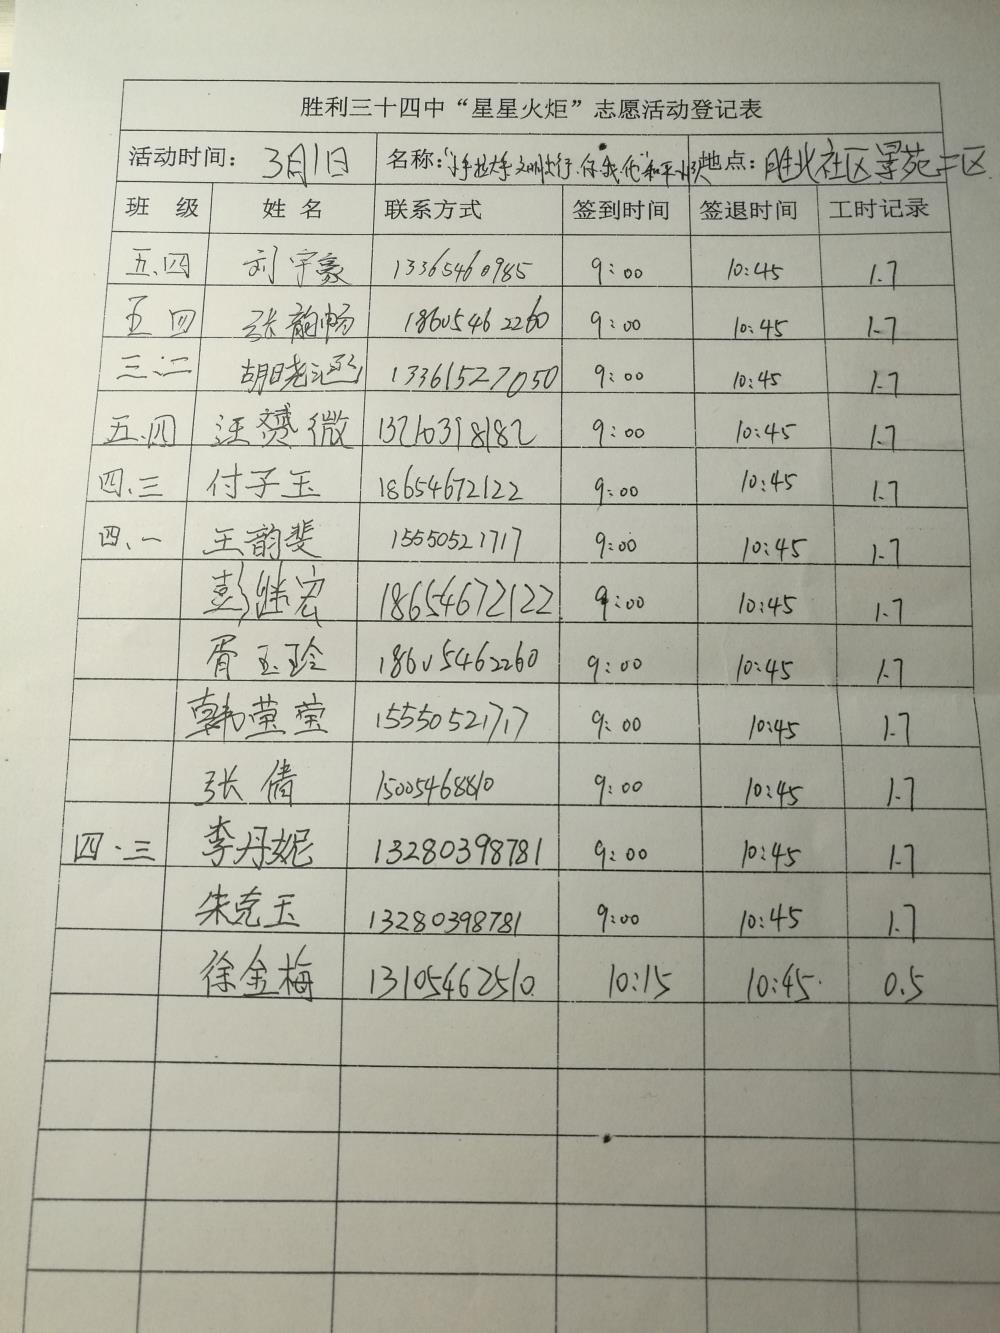 胜利三十四中“星星火炬”志愿活动登记表
活动时间： 3月1日 名称：“小手拉大手 文明出行.你.我.他”和平 地点：胜北社区景苑二区
班 级 姓 名 联系方式 签到时间 签退时间 工时记录
五.四 刘宇豪 13365460985 9:00 10:45 1.7
五 四 张韵畅 18605462260 9:00 10:45 1.7
三.二 胡晓 13361527050 9:00 10:45 1.7
五.四 汪赟微 13210398182 9:00 10:45 1.7
四.三 付子玉 18654672122 9:00 10:45 1.7
四.一 王韵斐 15550521717 9:00 10:45 1.7
彭继宏 18654672122 9:00 10:45 1.7
胥玉玲 18605462260 9:00 10:45 1.7
韩莹莹 15550521717 9:00 10:45 1.7
张倩 15005468810 9:00 10:45 1.7
四.三 李丹妮 13280398781 9:00 10:45 1.7
朱克玉 13280398781 9:00 10:45 1.7
徐金梅 13105462510 10:15 10:45 0.5